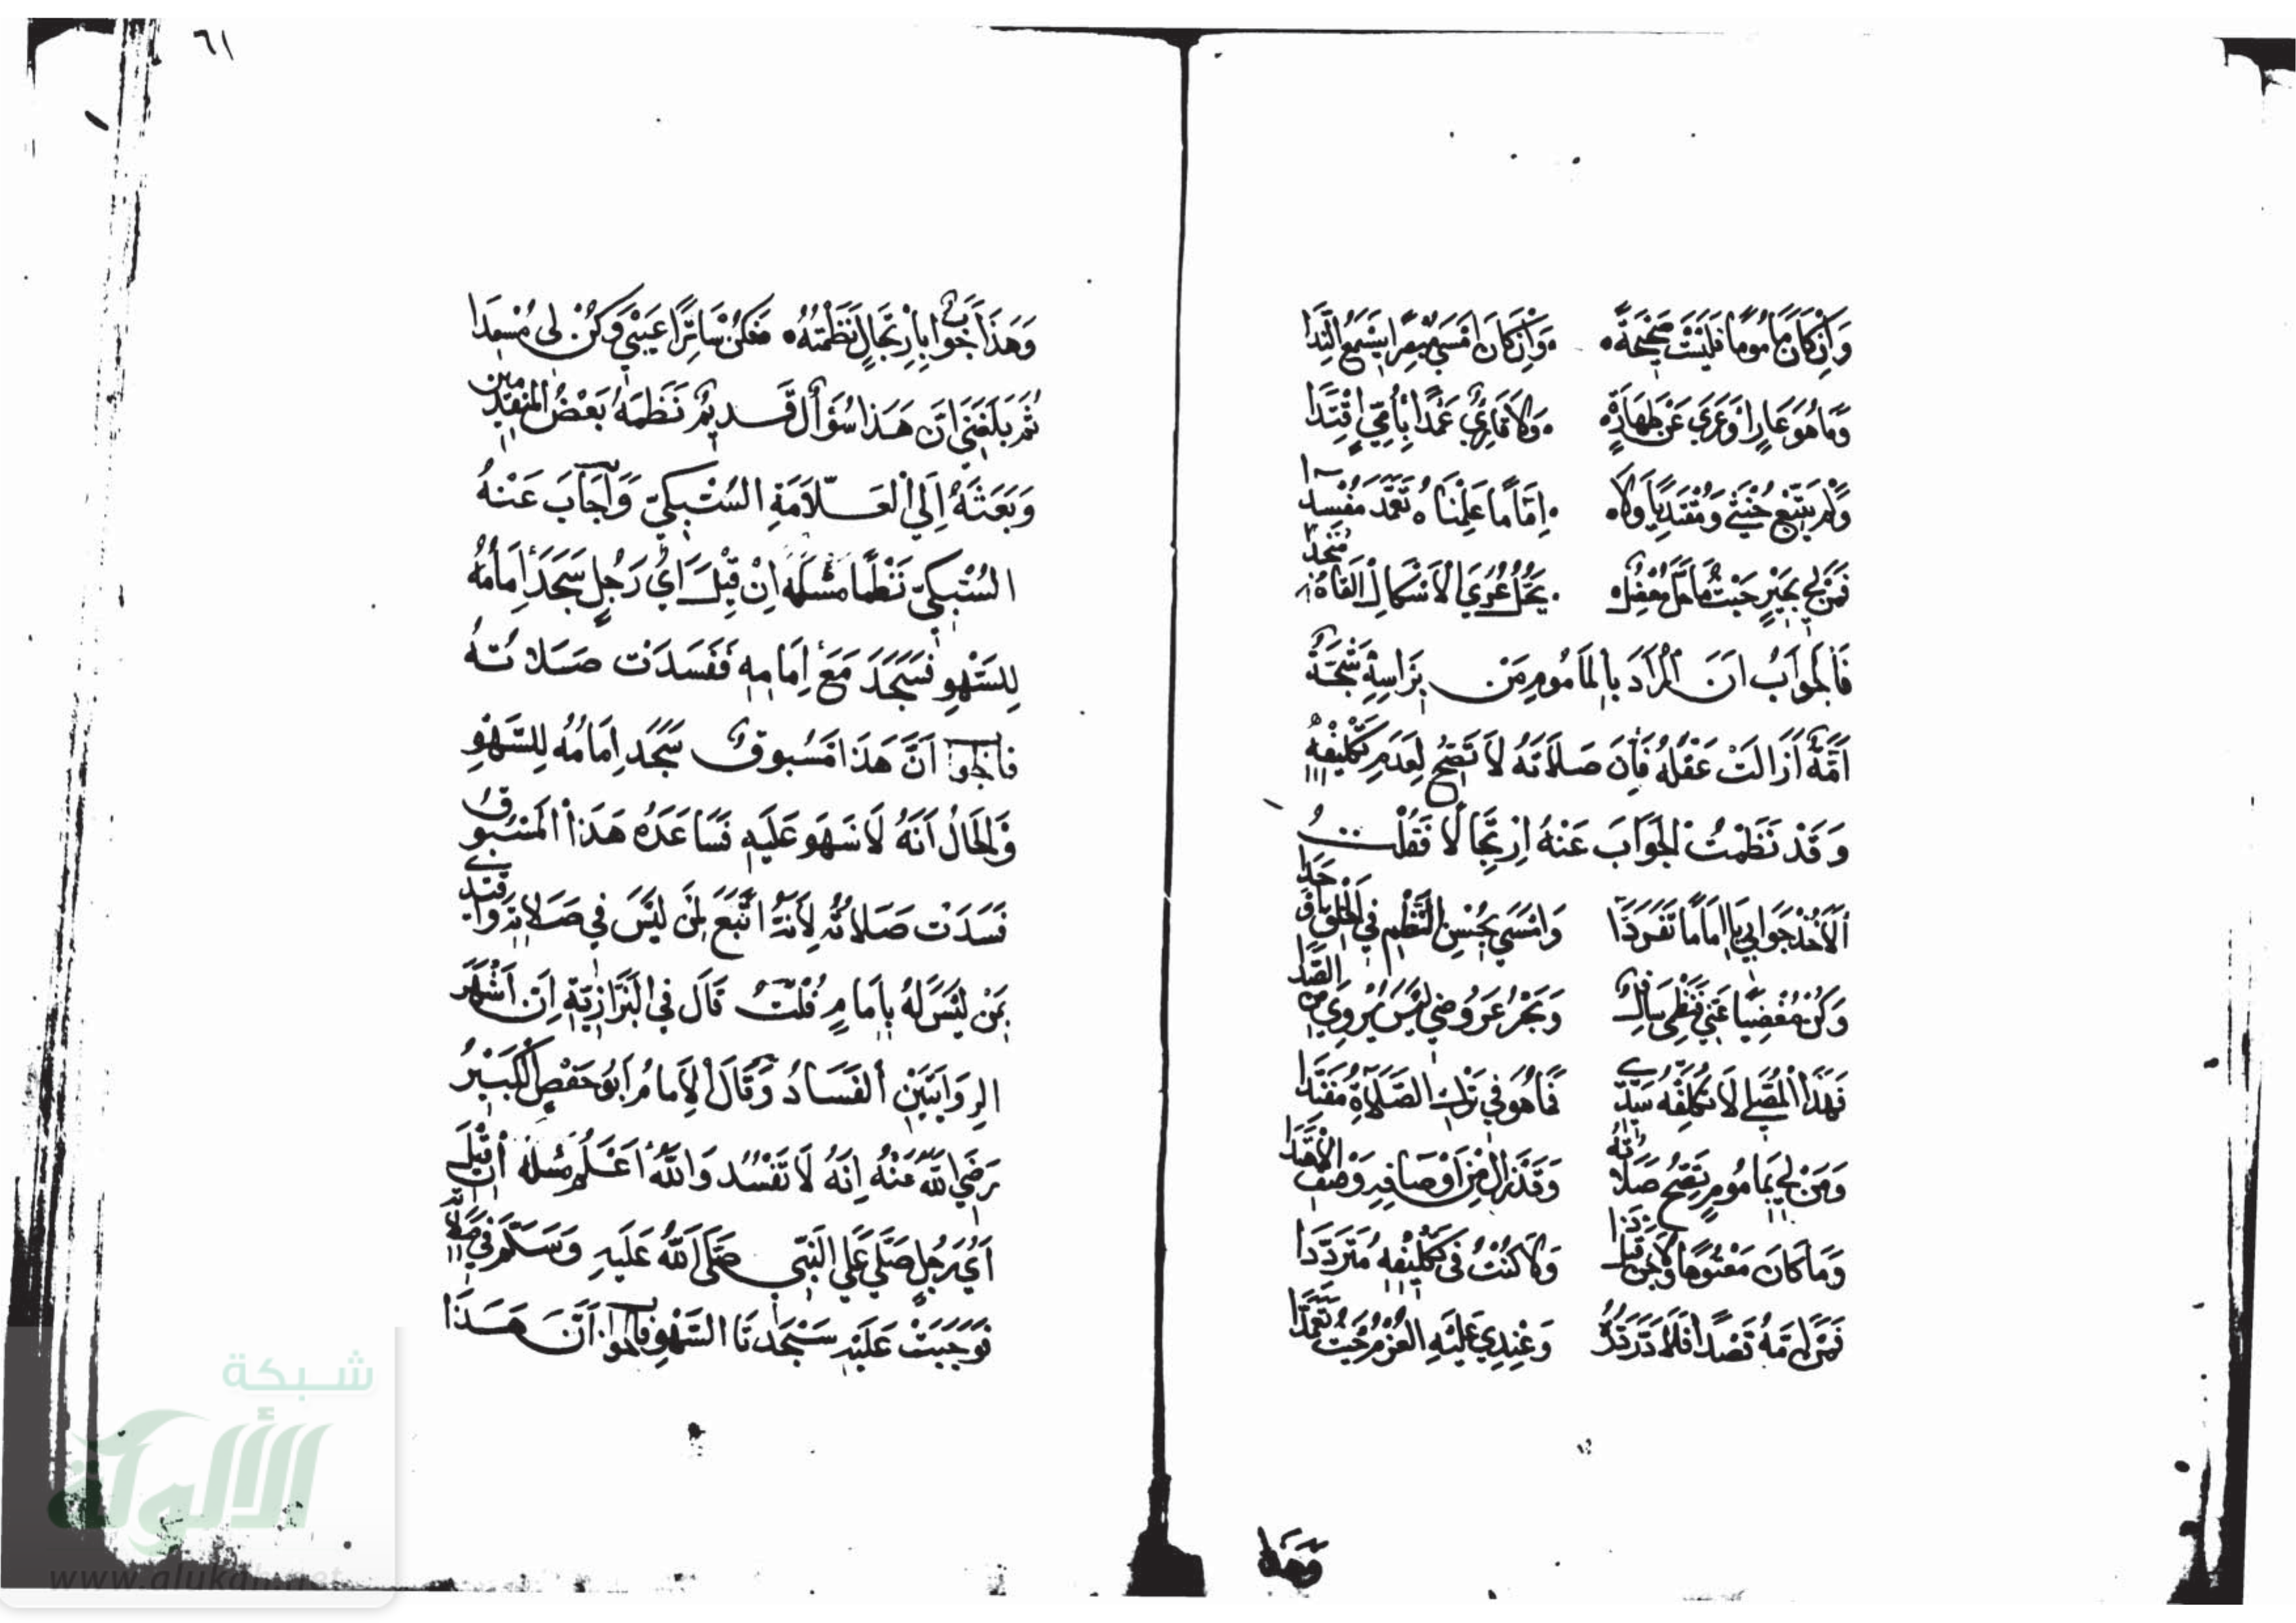 ٦١
وَإِنْ كَانَ مَأمُومًا فَلَيْسَتْ صَحِيحَةً وَإِنْ كَانَ أَمْسَى مُبْصِرًا يَسْمَعُ النِّدَا
وَمَا هُوَ عَارٍ أَوْ عَرِي عَنْ طَهَارَةٍ وَلَا قَارِئٍ عَمْدًا بِأُمِّيٍّ اقْتَدَا
وَلَمْ يَتَّبِعْ خُنْثَى وَمُقْتَدِيًا وَلَا إِمَامًا عَلِمْنَا تَعَمَّدَ مُفْسِدَا
فَمَنْ لِي بِحَبْرٍ حَيْثُ مَا حَلَّ مُعْضِلٌ يَحُلُّ عُرَى الْأَشْكَالِ أَلْقَاهُ مُنْجِدَا
فَالْجَوَابُ أَنَّ الْمُرَادَ بِالْمَأمُومِ مَنْ بِرَأسِهِ شَجَّةٌ
آمَّةٌ أَزَالَتْ عَقْلَهُ فَإِنَّ صَلَاتَهُ لَا تَصِحُّ لِعَدَمِ تَكْلِيفِهِ
وَقَدْ نَظَمْتُ الْجَوَابَ عَنْهُ ارْتِجَالًا فَقُلْتُ
أَلَا خُذْ جَوَابِي يَا إِمَامًا تَفَرَّدَا وَأَمْسَى بِحُسْنِ النَّظْمِ فِي الْخَلْقِ أَوْحَدَا
وَكُنْ مُغْضِيًا عَنِّي فَنَظْمِي وَبَحْرُ عَرُوضِي لَيْسَ يُرْوِي مِنَ الصَّدَا
فَهَذَا الْمُصَلِّي لَا نُكَلِّفُهُ سَيِّدِي فَمَا هُوَ فِي تَرْكِ الصَّلَاةِ مُفَنَّدَا
وَمَنْ لِي بِمَأمُومٍ تَصِحُّ صَلَاتُهُ وَقَدْ زَالَ مِنْ أَوْصَافِهِ وَصْفُ الْاهْتِدَا
وَمَا كَانَ مَعْتُوهًا وَلَا جُنَّ قَبْلَ ذَا وَلَا كُنْتُ فِي تَكْلِيفِهِ مُتَرَدِّدَا
فَمَنْ أَمَّهُ قَصْدًا فَلَا دَرَّ دَرُّهُ وَعِنْدِي عَلَيْهِ الْغُرْمُ حَيْثُ تَعَمَّدَا
وَهَذَا
وَهَذَا جَوَابٌ بِارْتِجَالٍ نَظَمْتُهُ فَكُنْ سَاتِرًا عَيْبِي وَكُنْ لِي مُسْعِدَا
ثُمَّ بَلَغَنِي أَنَّ هَذَا سُؤَالٌ قَدِيمٌ نَظَمَهُ بَعْضُ الْمُتَقَدِّمِينَ
وَبَعَثَهُ إِلَى الْعَلَّامَةِ السُّبْكِيِّ وَأَجَابَ عَنْهُ
السُّبْكِيُّ نَظْمًا مَسْئَلَة إِنْ قِيْلَ أَيُّ رَجُلٍ سَجَدَ إِمَامُهُ
لِلسَّهْوِ فَسَجَدَ مَعَ إِمَامِهِ فَفَسَدَتْ صَلَاتُهُ
فَالْجَوَابُ أَنَّ هَذَا مَسْبُوقٌ سَجَدَ إِمَامُهُ لِلسَّهْوِ
وَالْحَالُ أَنَّهُ لَا سَهْوَ عَلَيْهِ فَسَاعَدَهُ هَذَا الْمَسْبُوقُ
فَسَدَتْ صَلَاتُهُ لِأَنَّهُ اتَّبَعَ لِمَنْ لَيْسَ فِي صَلَاتِهِ وَاقْتَدَى
بِمَنْ لَيْسَ لَهُ بِإِمَامٍ قُلْتُ قَالَ فِي الْبَزَّازِيَّةِ إِنَّ أَشْهَرَ
الرِّوَايَتَيْنِ الْفَسَادُ وَقَالَ الْإِمَامُ أَبُو حَفْصٍ الْكَبِيْرُ
رَضِيَ اللَّهُ عَنْهُ إِنَّهُ لَا تَفْسُدُ وَاللَّهُ أَعْلَمُ مَسْئَلَة إِنْ قِيْلَ
أَيُّ رَجُلٍ صَلَّى عَلَى النَّبِيِّ صَلَّى اللَّهُ عَلَيْهِ وَسَلَّمَ فِي صَلَاتِهِ
فَوَجَبَتْ عَلَيْهِ سَجْدَتَا السَّهْوِ فَالْجَوَابُ أَنَّ هَذَا
شبكة
الألوكة
www.alukah.net